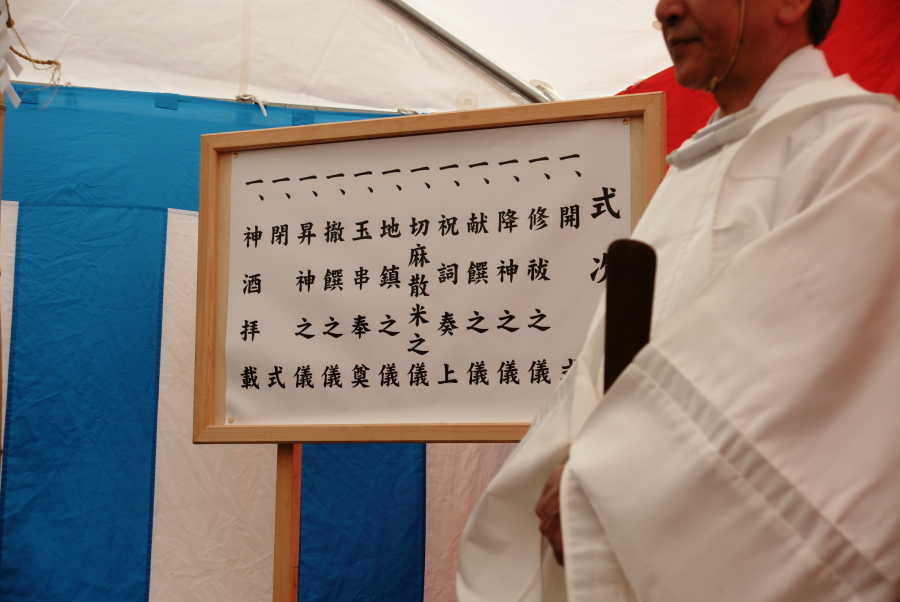 式次
一、開式
一、修祓之儀
一、降神之儀
一、献饌之儀
一、祝詞奏上
一、切麻散米之儀
一、地鎮之儀
一、玉串奉奠
一、撤饌之儀
一、昇神之儀
一、閉式
一、神酒拝載